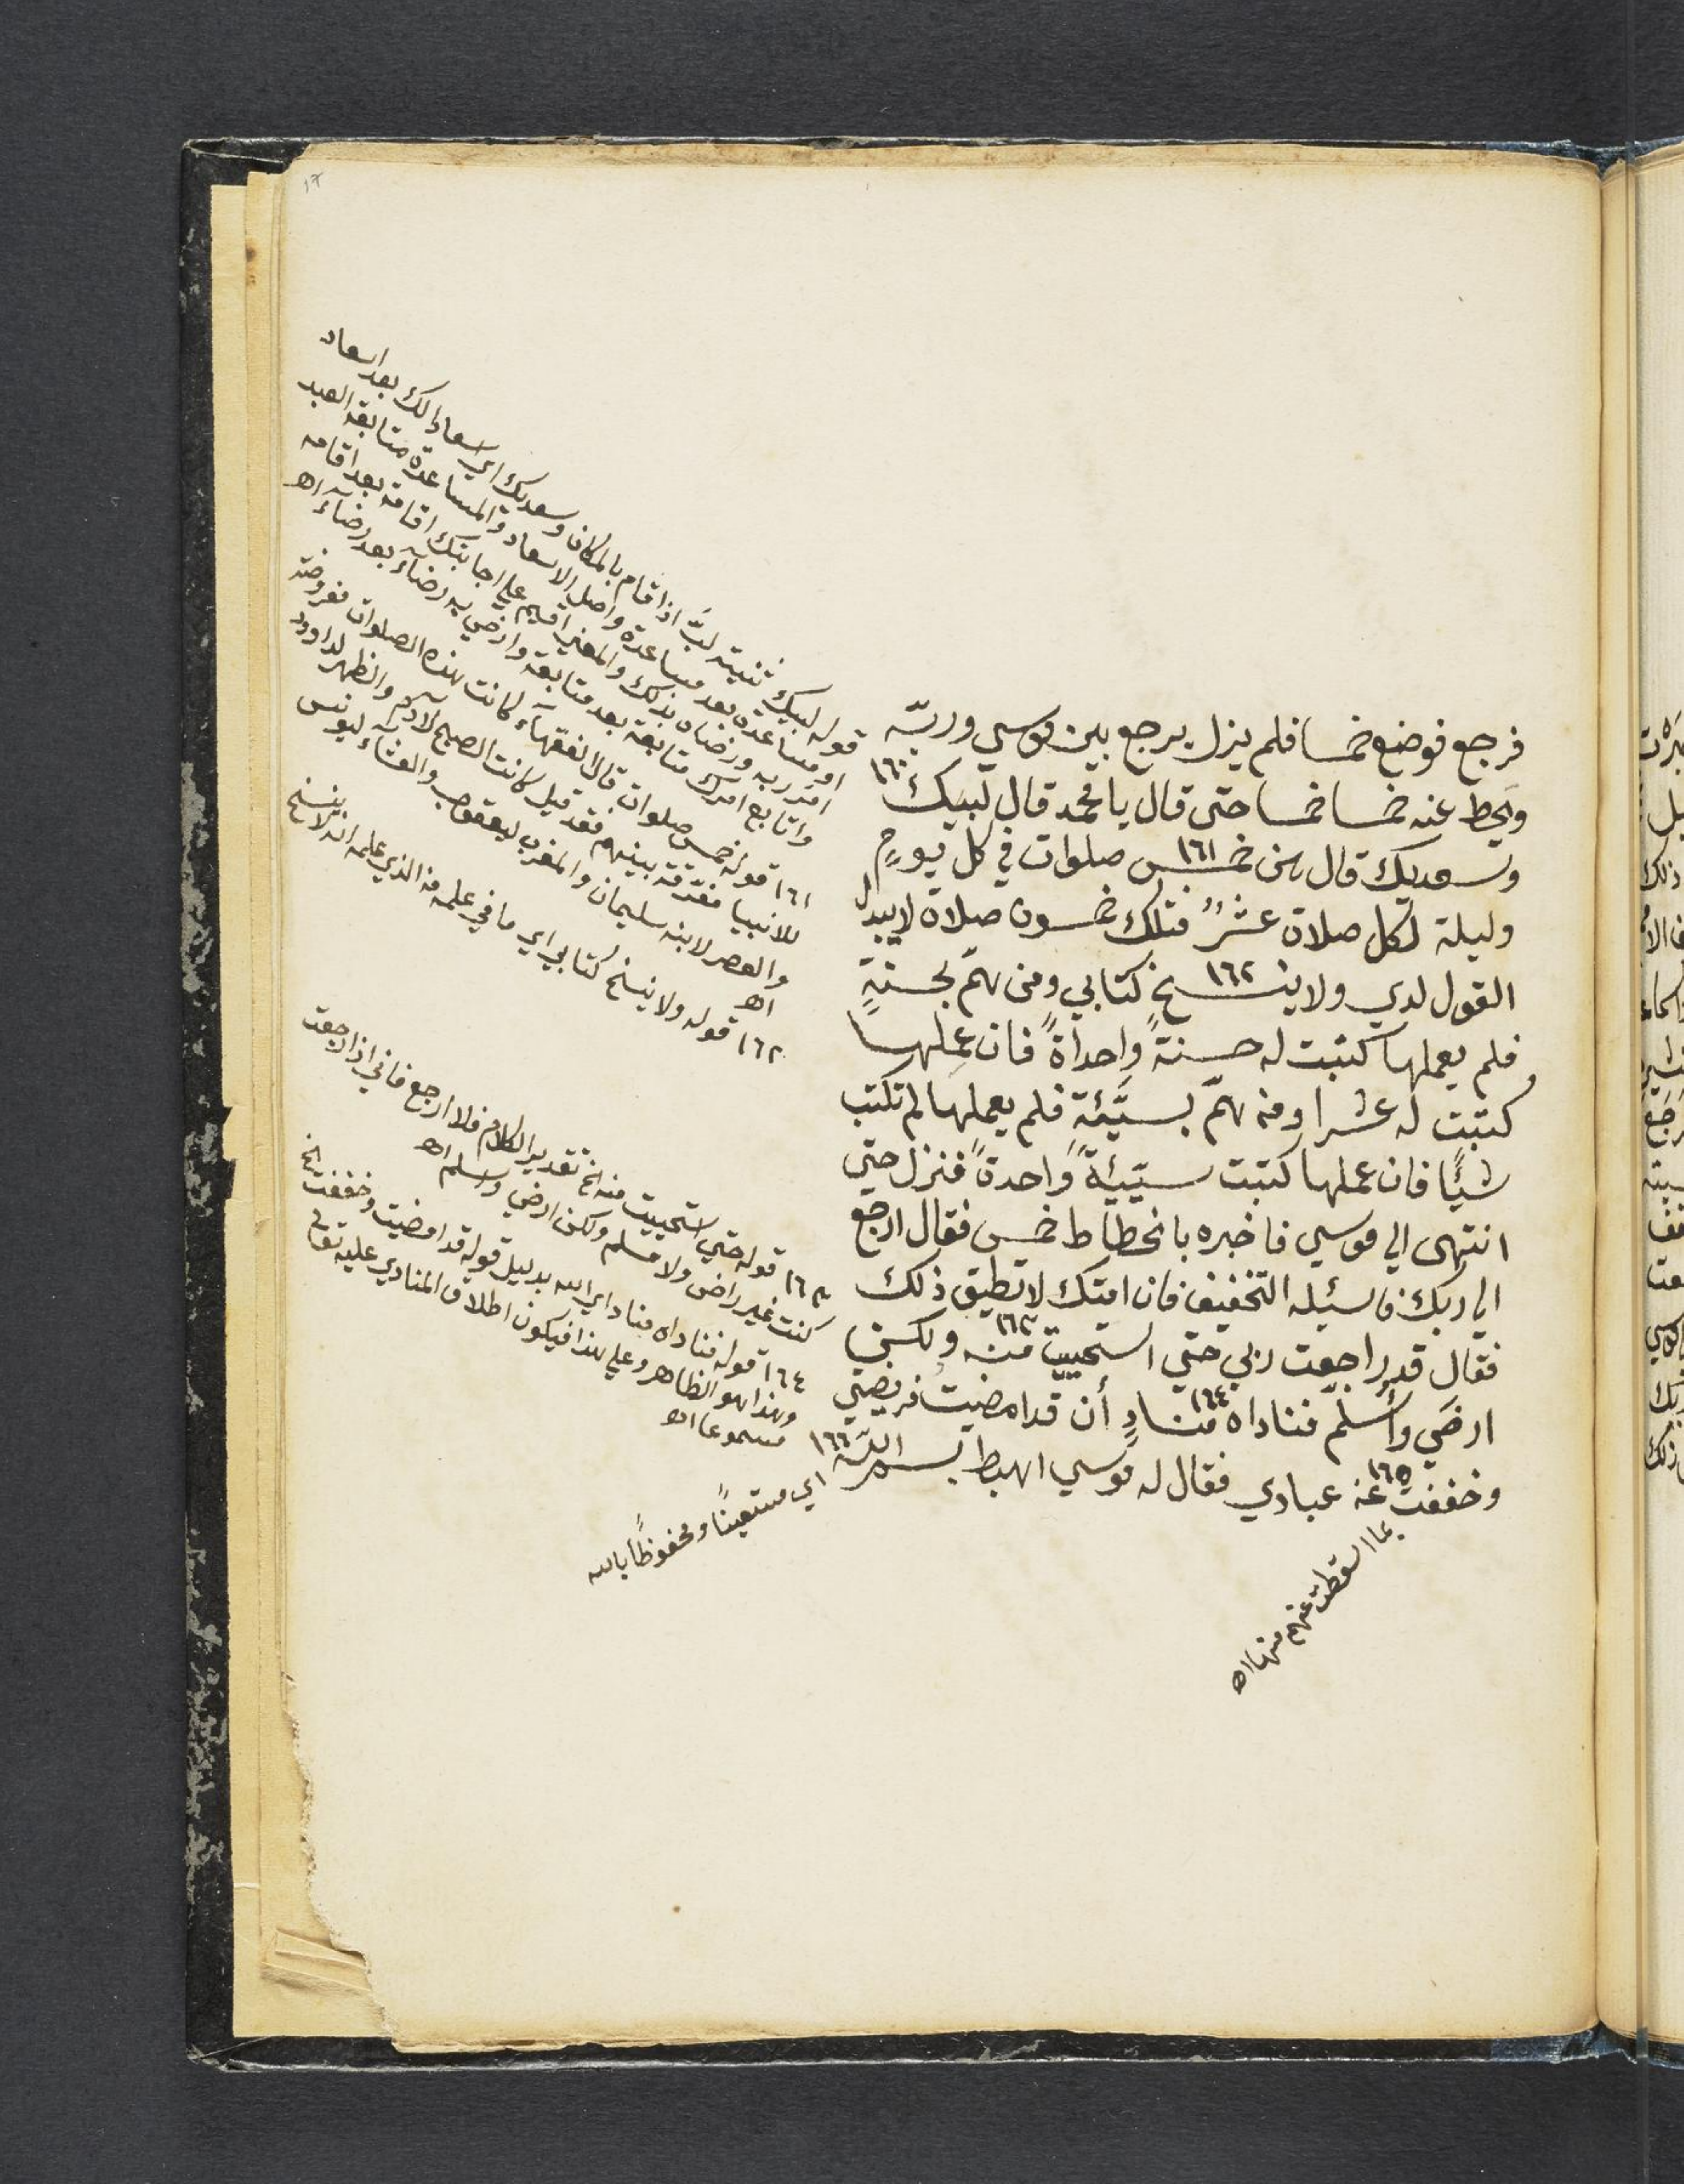 ١٧
فرجع فوضع خمسا فلم يزل يرجع بين موسي وربّه
ويحط عنه خمسا خمسا حتى قال يا محمد قال لبيك ١٦٠
وسعديك قال هن خمس ١٦١ صلوات في كل يومٍ
وليلة لكل صلاة عشرٌ فتلك خمسون صلاة لايبدل
القول لدي ولا ينسخ ١٦٢ كتابي ومن همّ بحسنةٍ
فلم يعملها كتبت له حسنةً واحداةً فان عملها
كتبت له عشرا ومن همّ بسيّئةٍ فلم يعملها لم تكتب
شيئًا فان عملها كتبت سيّيئةً واحدةً فنزل حتي
انتهى الي موسي فاخبره بانحطاط خمس فقال ارجع
الي ربك فاسئله التخفيف فان امتك لاتطيق ذلك
فقال قد راجعت ربي حتي استحييت ١٦٣ منه ولكن
ارضَي وأسلّم فناداه ١٦٤ منادٍ أن قد امضيتُ فريضتي
وخففت ١٦٥ عن عبادي فقال له موسي اهبط بسم اللّه ١٦٦
قوله لبيك تثنية لبَّ اذا قام بالمكان وسعديك اي اسعادا لك بعد اسعاد
او مساعدة بعد مساعدة واصل الاسعاد والمساعدة متابعة العبد
امر ربه ورضاه بذلك والمعني اقيم علي اجابتك اقامة بعد اقامه
واتابع امرك متابعة بعد متابعة وارضي به رضآء بعد رضآء اه
١٦١ قوله خمس صلوات قال الفقهآء كانت هذه الصلوات مفروضة
للانبيا مفرّقة بينهم فقد قيل كانت الصبح لآدم والظهر لداوود
والعصر لابنه سليمان والمغرب ليعقوب والعشآء ليونس
اه
١٦٢ قوله ولا ينسخ كتابي اي ما في علمه من الذي علمه انه لا ينسخ
١٦٣ قوله حتي استحييت منه الخ تقدير الكلام فلا ارجع فاني اذا رجعت
كنت غير راض ولا مسلم ولكن ارضي واسلم اه
١٦٤ قوله فناداه مناد اي الله بدليل قوله قد امضيت وخففت الخ
وهذا هو الظاهر وعلي هذا فيكون اطلاق المنادي عليه تعالي
مسموعا اه
اي مستعينًا ومحفوظًا بالله
بما اسقطت عنهم منها اه